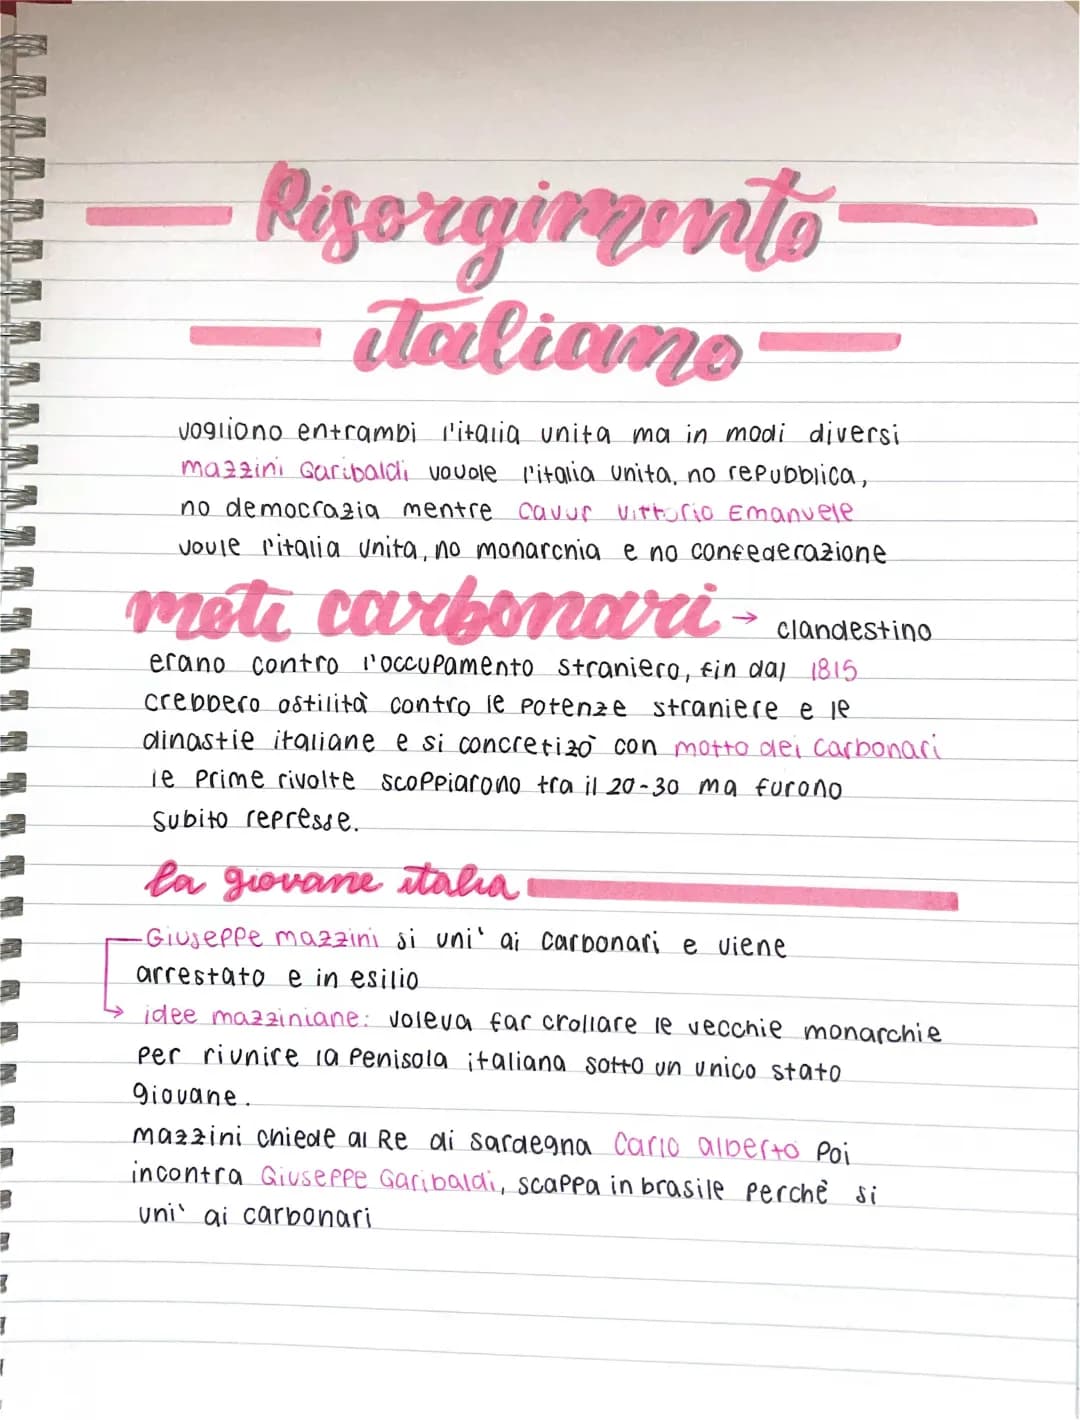 Risorgimento
italiano
vogliono entrambi l'italia unita ma in modi diversi
mazzini Garibaldi vouole l'italia unita, no repubblica,
no democrazia mentre Cavur Vittorio Emanuele
voule l'italia unita, no monarchia e no confederazione
moti carbonari → clandestino
erano contro l'occupamento straniero, fin dal 1815
crebbero ostilità contro le potenze straniere e le
dinastie italiane e si concretizò con motto dei Carbonari
le prime rivolte scoppiarono tra il 20-30 ma furono
subito represse.
la giovane italia
Giuseppe mazzini si uni' ai carbonari e viene
arrestato e in esilio
idee mazziniane: voleva far crollare le vecchie monarchie
per riunire la penisola italiana sotto un unico stato
giovane.
mazzini chiede al Re di sardegna Carlo alberto poi
incontra Giuseppe Garibaldi, scappa in brasile perchè si
uni' ai carbonari